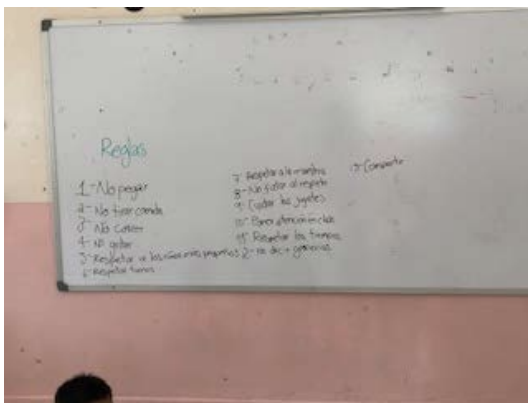 Reglas
1- No pegar
2- No tirar comida
3- No correr
4- No gritar
5- Respetar a los niños más pequeños
6- Respetar turnos
7- Respetar a la maestra
8- No faltar al respeto
9- Cuidar los juguetes
10- Poner atención en clase
11- Respetar los tiempos
2- no decir groserías
13- Compartir